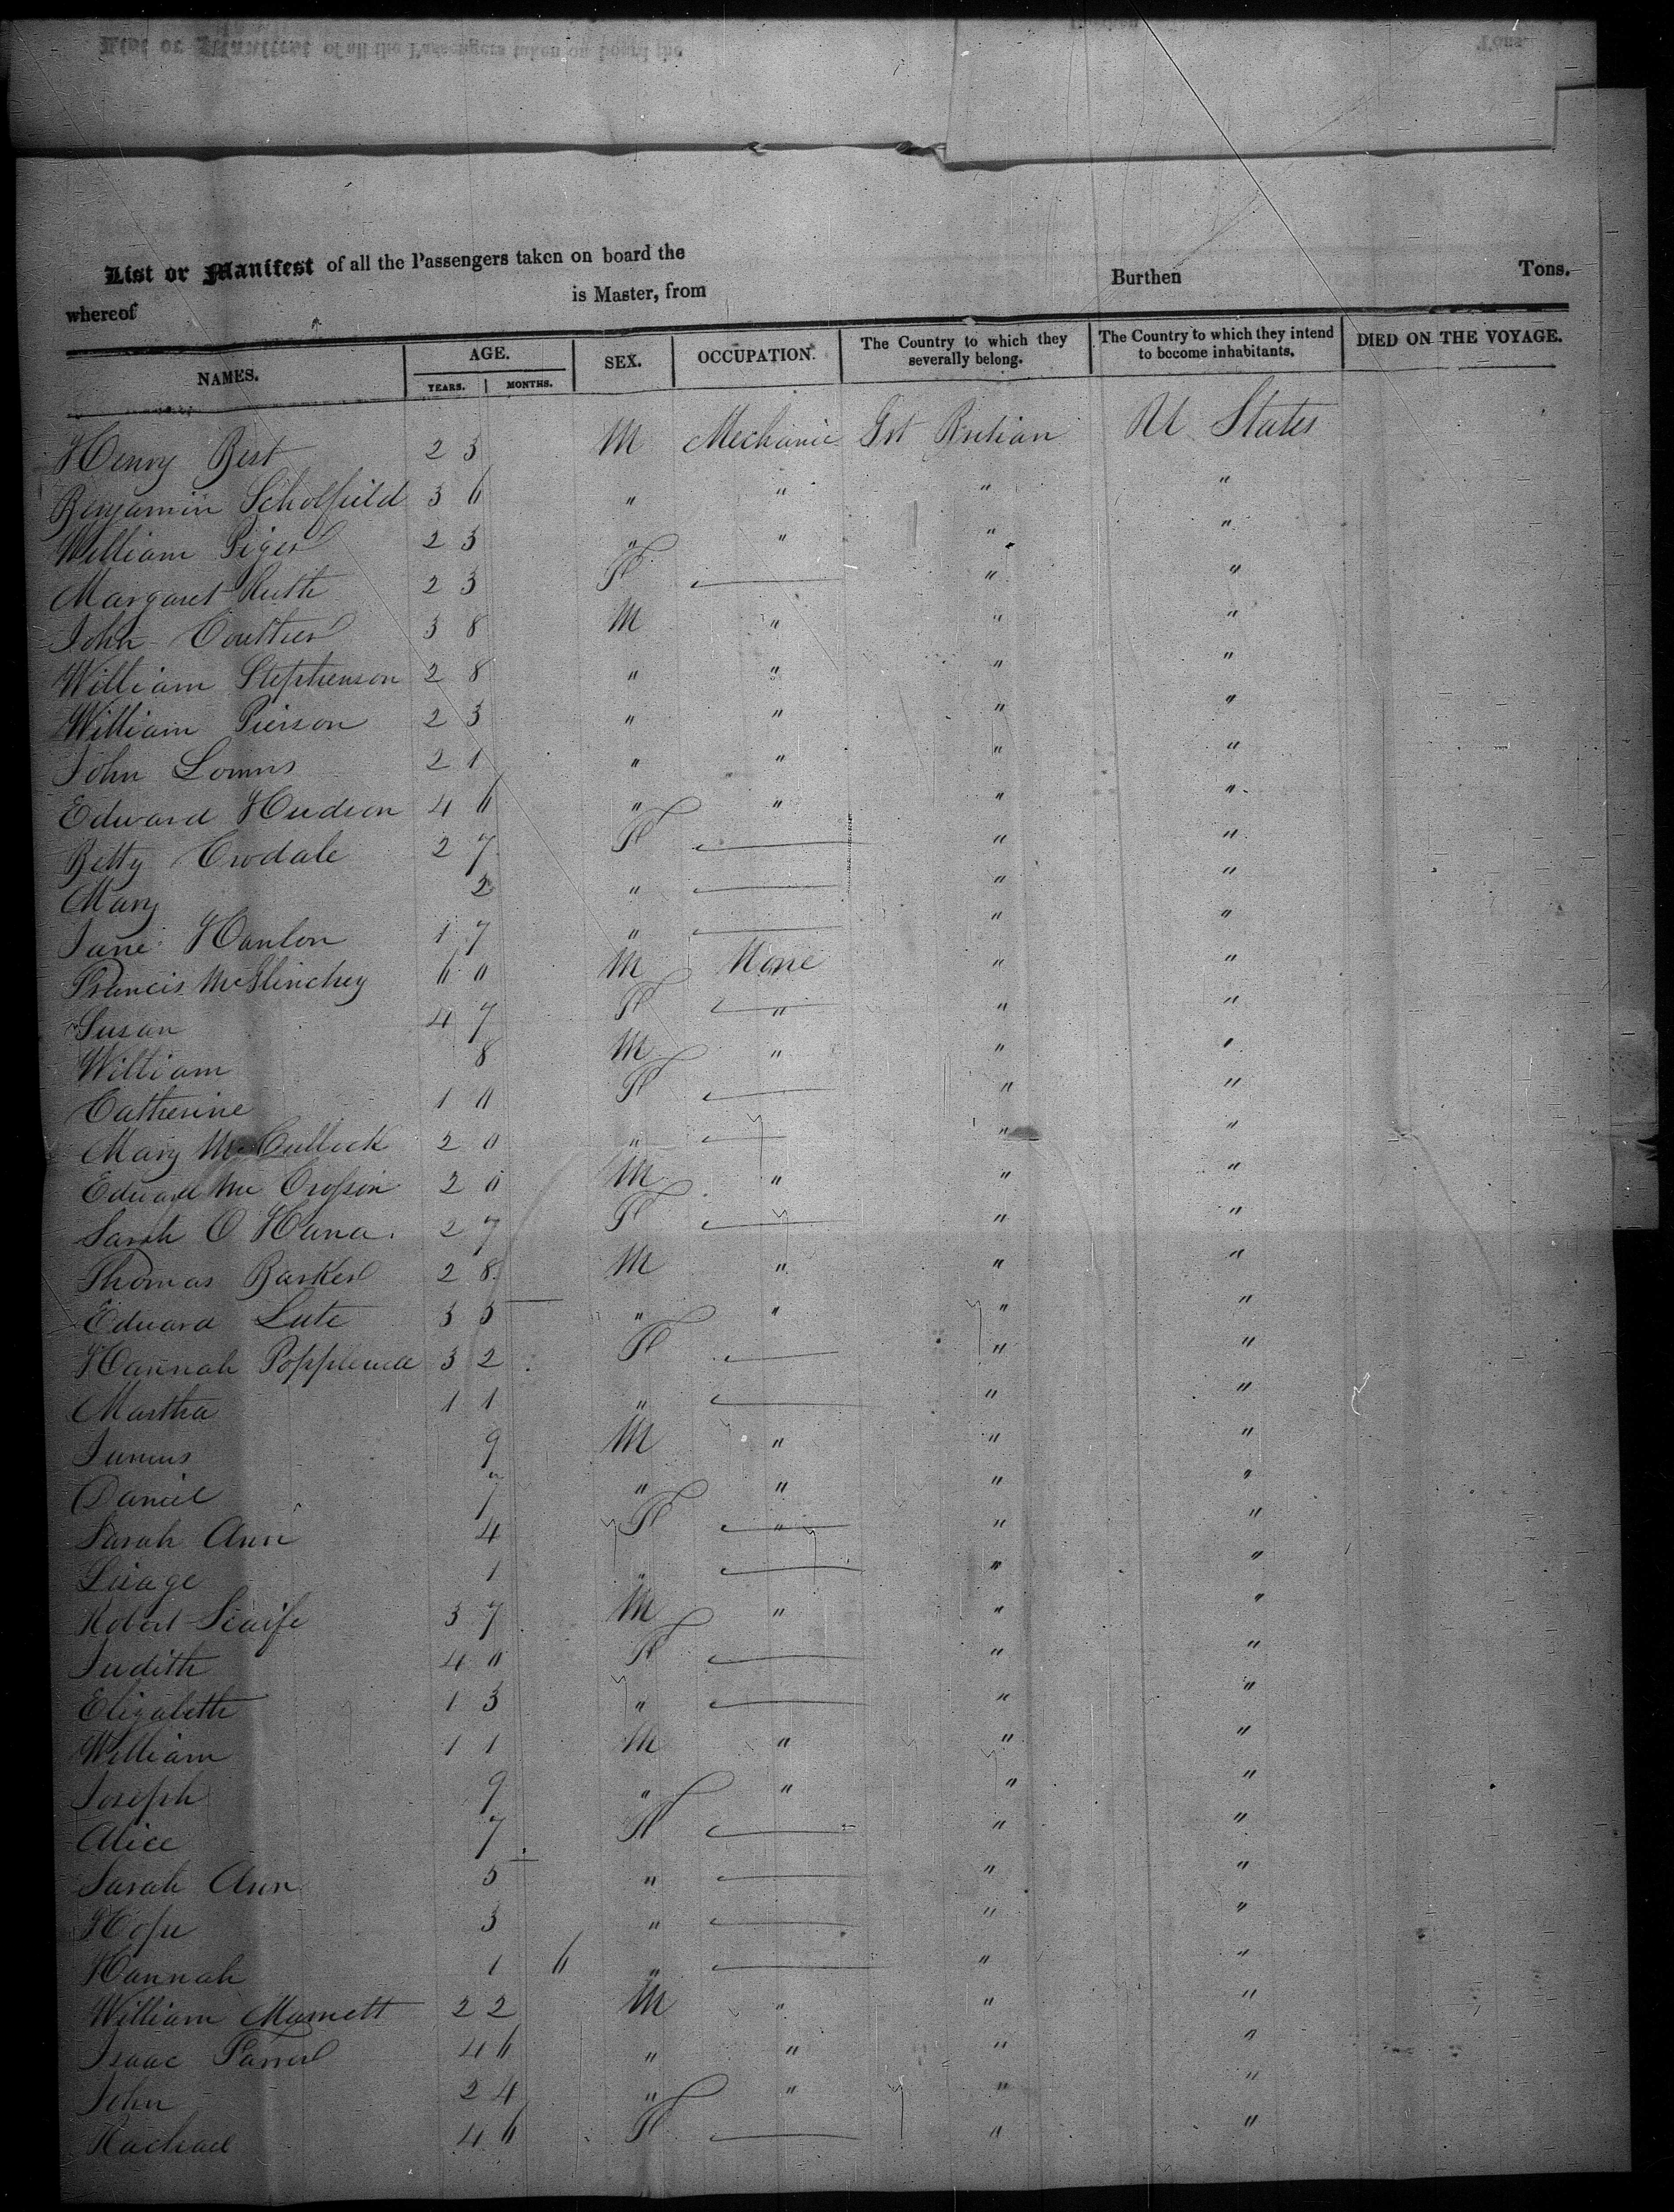 List or Manifest of all the Passengers taken on board the
Burthen Tons.
whereof is Master, from
NAMES. AGE. SEX. OCCUPATION. The Country to which they severally belong. The Country to which they intend to become inhabitants. DIED ON THE VOYAGE.
YEARS. MONTHS.
Henry Best 23 M Mechanic Grt Britian U States
Benjamin Scholfield 36 " " " "
William 23 " " " "
Margaret Ruth 23 F — " "
John Coulther 38 M " " "
William Stephenson 28 " " " "
William Pierson 23 " " " "
John Lomns 21 " " " "
Edward Hudson 46 " " " "
Betty Crodale 27 F — " "
Mary 2 " — " "
Jane Hanlon 17 " — " "
Francis McGlinchey 60 M None " "
Susan 47 F " " "
William 8 M " " "
Catherine 10 F — " "
Mary McCullock 20 " — " "
Edward Mc 20 M " " "
Sarah O Hara 27 F — " "
Thomas Barker 28 M " " "
Edward Lute 35 " " " "
Hannah Popplewell 32 F — " "
Martha 11 " — " "
Junius 9 M " " "
Daniel 7 " " " "
Sarah Ann 4 F " " "
1 " — " "
Robert Scaife 37 M " " "
Judith 40 F — " "
Elizabeth 13 " — " "
William 11 M " " "
Joseph 9 " " " "
Alice 7 F — " "
Sarah Ann 5 " — " "
Hope 3 " — " "
Hannah 1 6 " — " "
William 22 M " " "
Isaac Farrer 46 " " " "
John 24 " " " "
Rachael 46 F — " "